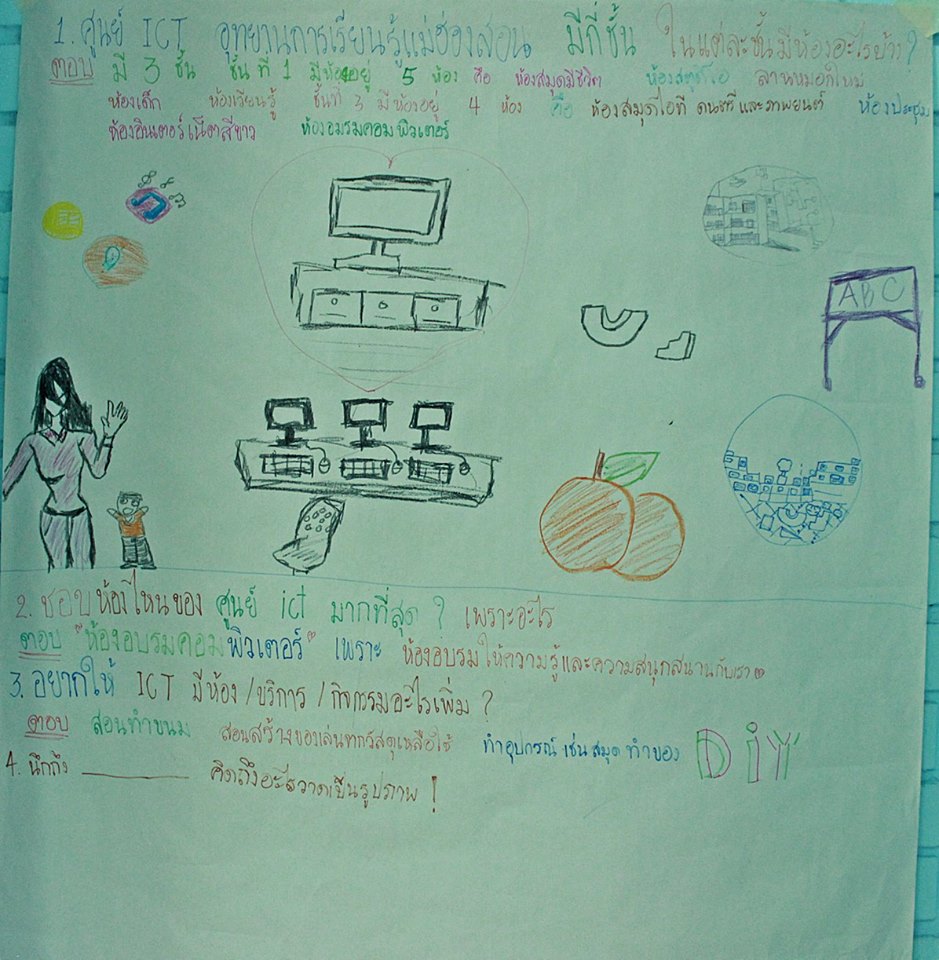 1. ศูนย์ ICT อุทยานการเรียนรู้แม่ฮ่องสอน มีกี่ชั้น ในแต่ละชั้นมีห้องอะไรบ้าง?
ตอบ มี 3 ชั้น ชั้นที่ 1 มีห้องอยู่ 5 ห้อง คือ ห้องสมุดมีชีวิต ลานหมอกใหม่
ห้องเด็ก ห้องเรียนรู้ ชั้นที่ 3 มีห้องอยู่ 4 ห้อง คือ ห้องสมุดไอที ดนตรีและภาพยนต์ ห้องประชุม
ห้องอินเตอร์เน็ตสีขาว ห้องอมรมคอมพิวเตอร์
ABC
2. ชอบห้องไหนของ ศูนย์ ict มากที่สุด? เพราะอะไร
ตอบ "ห้องอบรมคอมพิวเตอร์" เพราะ ห้องอบรมให้ความรู้และความสนุกสนานกับเรา
3. อยากให้ ICT มีห้อง/บริการ/กิจกรรมอะไรเพิ่ม?
ตอบ สอนทำขนม สอนสร้างของเล่นจากวัสดุเหลือใช้ ทำอุปกรณ์ เช่น สมุด ทำของ DIY
4. นึกถึง __________ คิดถึงอะไรวาดเป็นรูปภาพ!